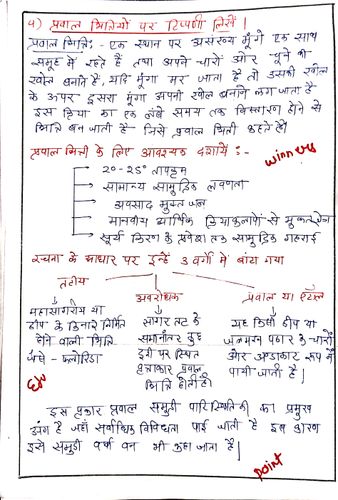 4) प्रवाल भित्तियों पर टिप्पणी लिखें।
प्रवाल भित्ति:- एक स्थान पर असंख्य मूंगे एक साथ
समूह में रहते हैं तथा अपने चारों ओर चूने की
खोल बनाते हैं, यदि मूंगा मर जाता है तो उसकी खोल
के ऊपर दूसरा मूंगा अपनी खोल बनाने लग जाता है
इस क्रिया का एक लंबे समय तक विस्तारण होने से
भित्ति बन जाती है जिसे प्रवाल भित्ती कहते हैं।
प्रवाल भित्ती के लिए आवश्यक दशायें :-
winners
20-25° तापक्रम
सामान्य सामुद्रिक लवणता
अवसाद मुक्त जल
मानवीय आर्थिक क्रियाकलापों से मुक्त क्षेत्र
सूर्य किरण के प्रवेश तक सामुद्रिक गहराई
रचना के आधार पर इन्हें 3 वर्गों में बांटा गया
तटीय
अवरोधक
प्रवाल या एटॉल
महासागरीय या
द्वीप के किनारे निर्मित
होने वाली भित्ति
जैसे - फ्लोरिडा
सागर तट के
समानांतर कुछ
दूरी पर स्थित
वृत्ताकार प्रवाल
भित्ति होती है
यह किसी द्वीप या
जलमग्न पठार के चारों
ओर अण्डाकार रूप में
पायी जाती है।
इस प्रकार प्रवाल समुद्री पारिस्थितिकी का प्रमुख
अंग है जहाँ सर्वाधिक विविधता पाई जाती है इस कारण
इसे समुद्री वर्षा वन भी कहा जाता है।
point